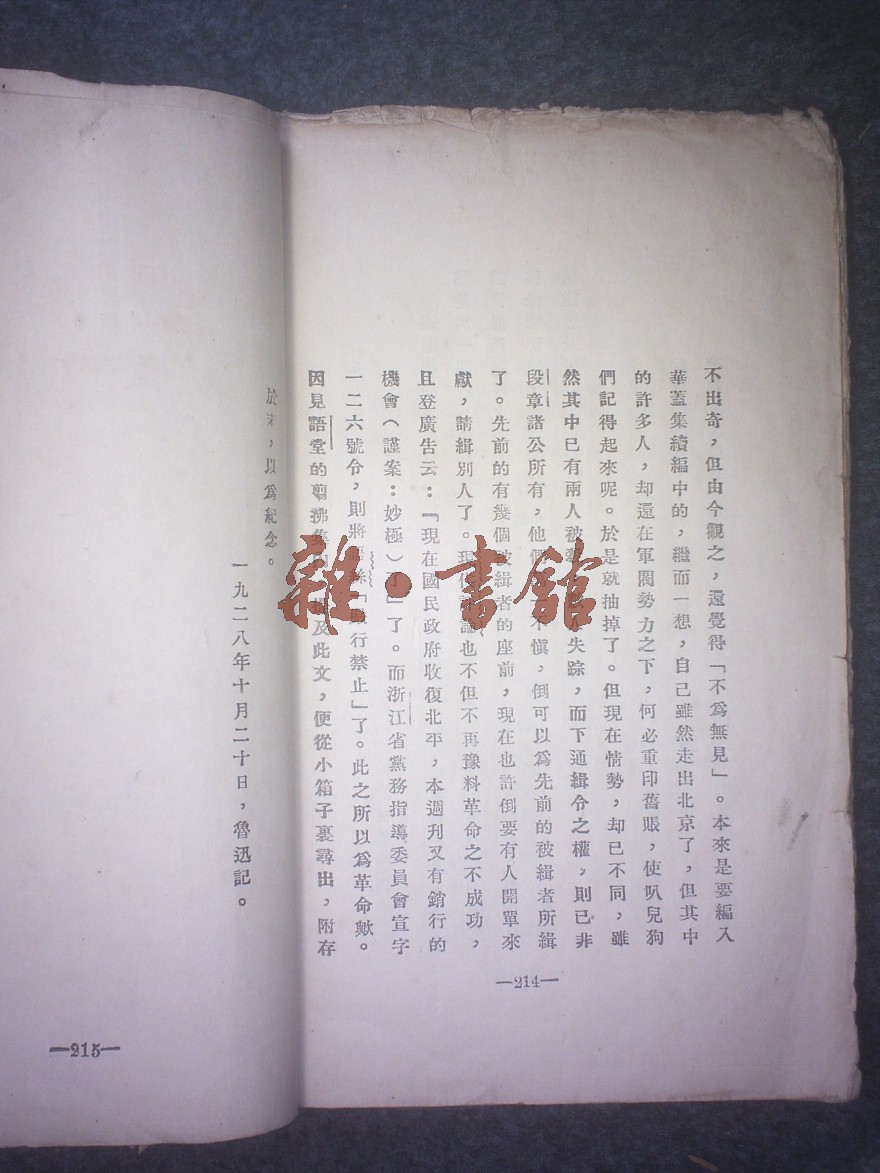 不出奇，但由今觀之，還覺得「不爲無見」。本來是要編入
華蓋集續編中的，繼而一想，自己雖然走出北京了，但其中
的許多人，却還在軍閥勢力之下，何必重印舊賬，使叭兒狗
們記得起來呢。於是就抽掉了。但現在情勢，却已不同，雖
然其中已有兩人被 失踪，而下通緝令之權，則已非
段章諸公所有，他 不愼，倒可以爲先前的被緝者所緝
了。先前的有幾個被緝者的座前，現在也許倒要有人開單來
獻，請緝別人了。現 論也不但不再豫料革命之不成功，
且登廣告云：「現在國民政府收復北平，本週刊又有銷行的
機會（謹案：妙極）了」了。而浙江省黨務指導委員會宣字
一二六號令，則將 絲「 行禁止」了。此之所以爲革命歟。
因見語堂的翦拂集 及此文，便從小箱子裏尋出，附存
—214—
於末，以爲紀念。
一九二八年十月二十日，魯迅記。
—215—
雜·書館